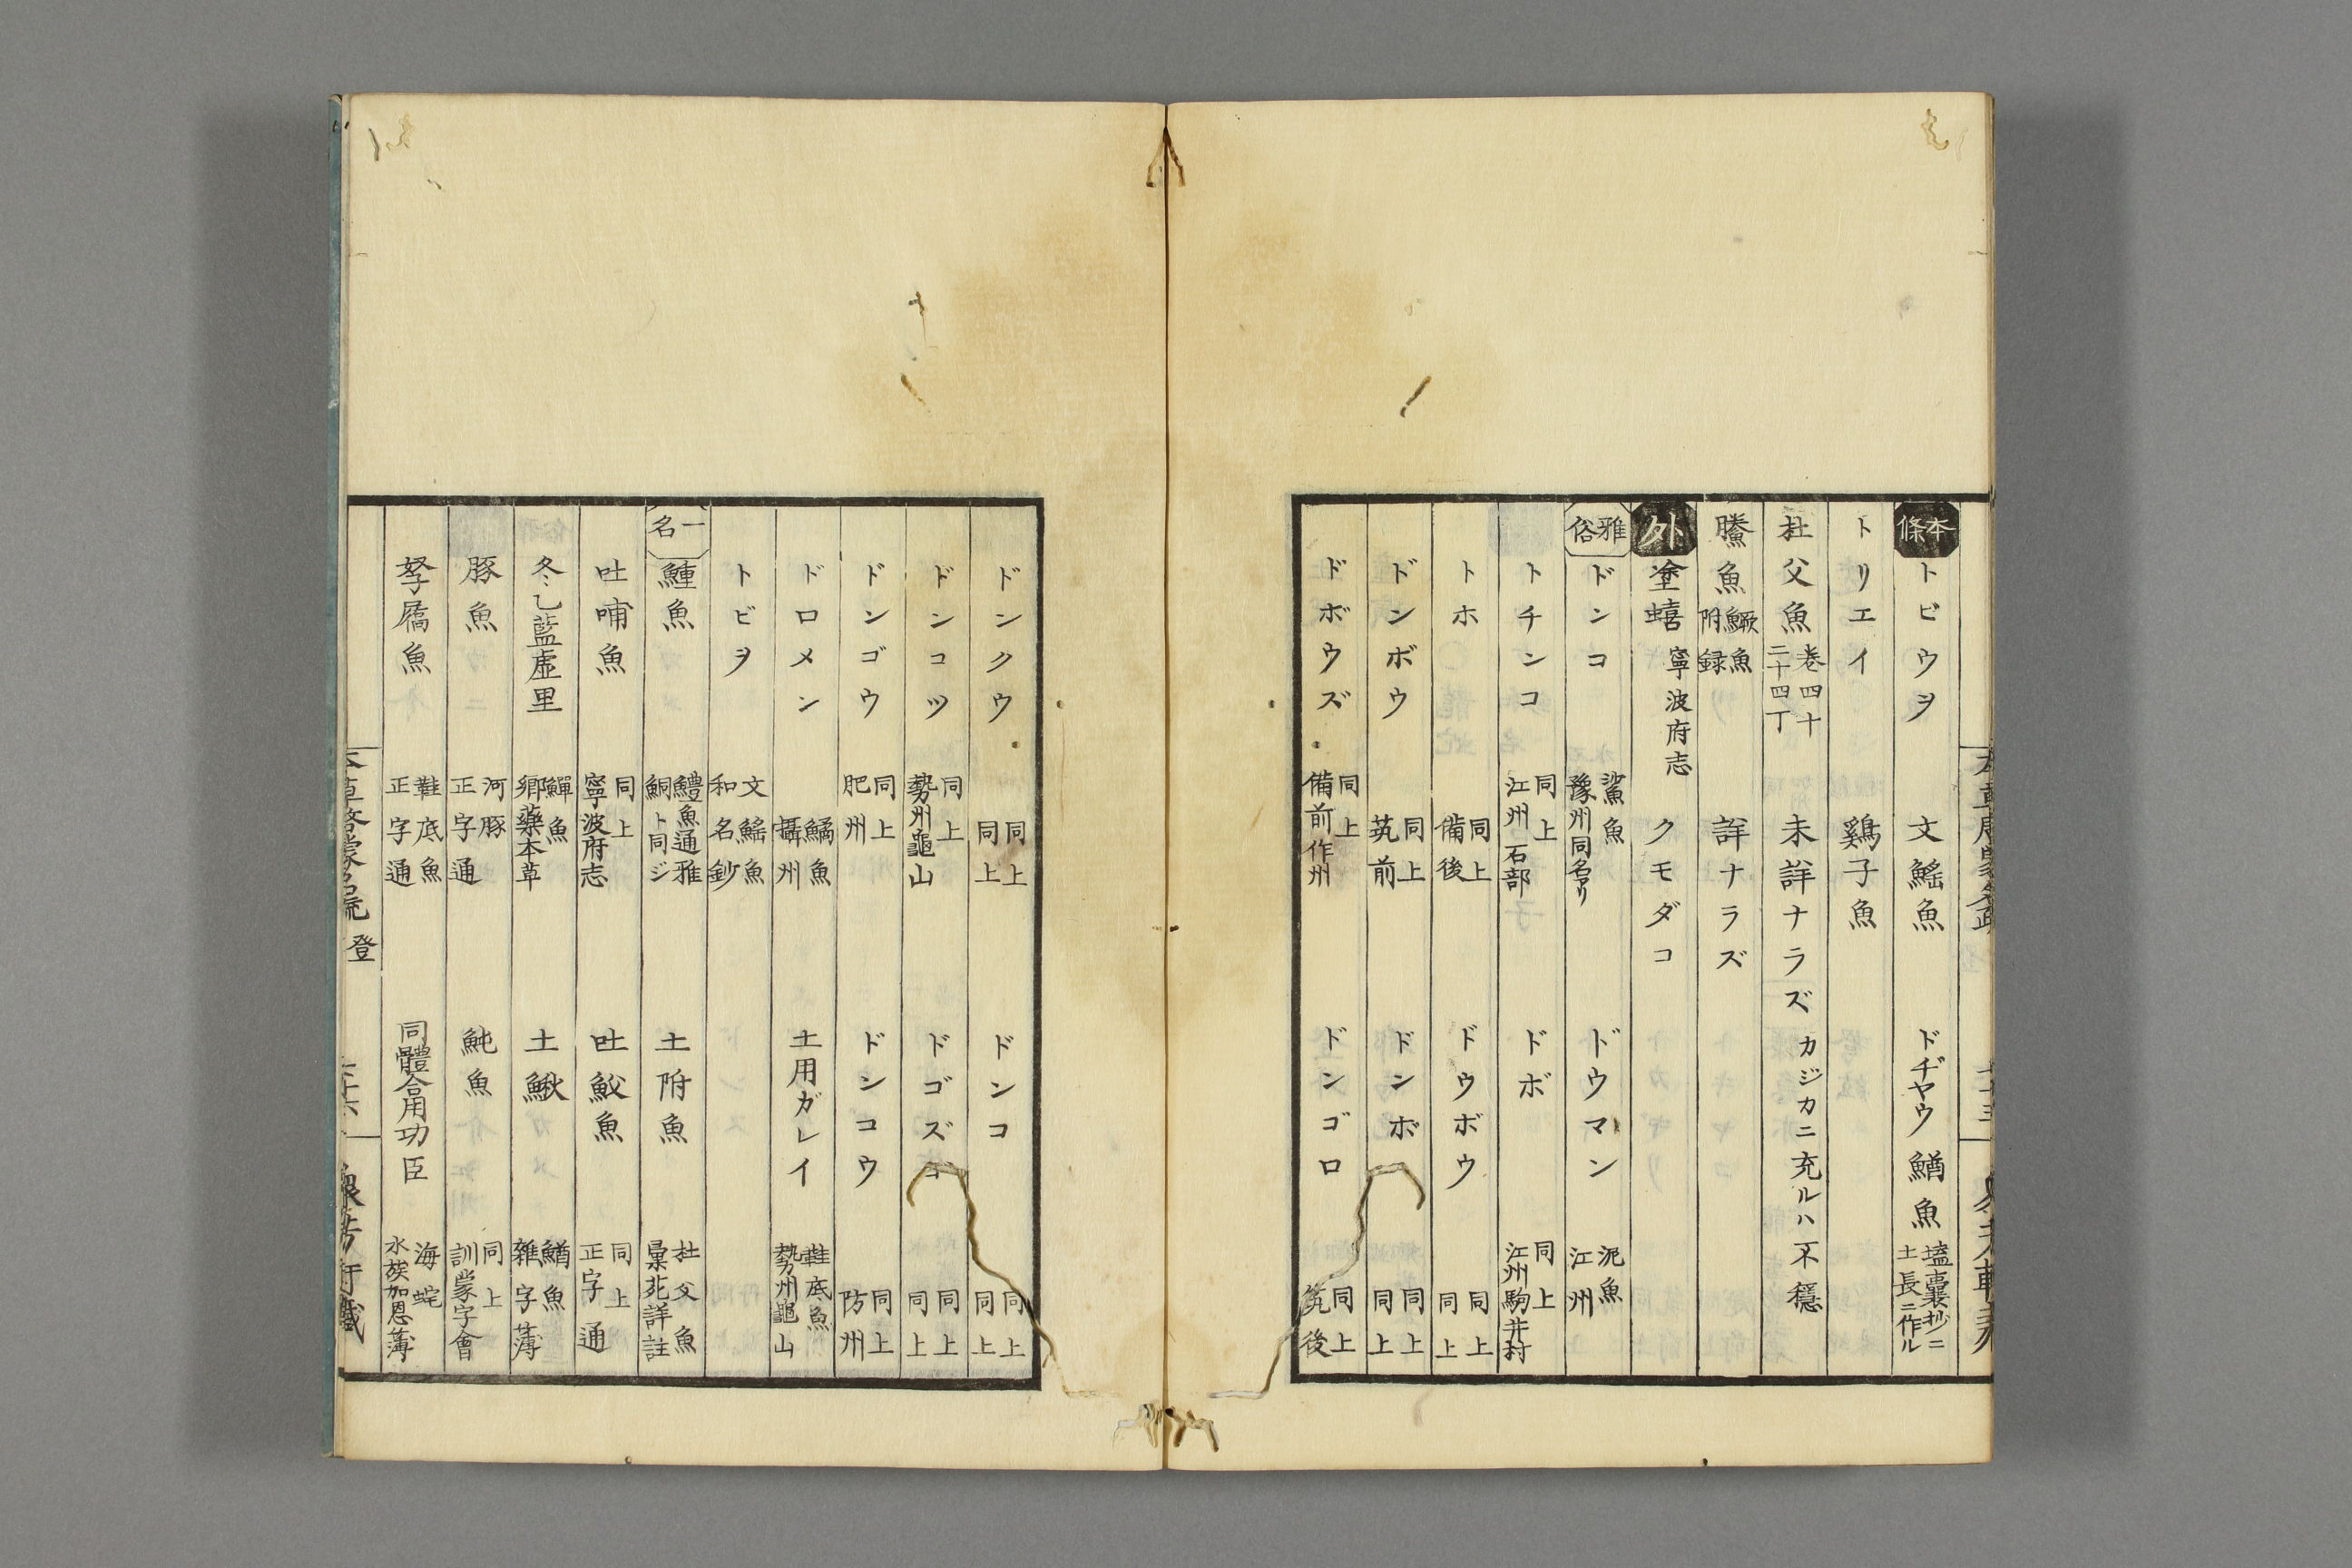 本條
トビウヲ 文鰩魚
ドヂヤウ 鰌魚 壒囊抄ニ土長ニ作ル
トリエイ 鷄子魚
杜父魚 卷四十二十四丁 未詳ナラズ カジカニ充ルハ不穩
鱖魚附録 詳ナラズ
外
塗蟢 寧波府志 クモダコ
雅俗
ドンコ 鯊魚 豫州同名アリ
ドウマン 泥魚 江州
トチンコ 同上 江州石部
ドボ 同上 江州駒井村
トホ 同上 備後
ドウボウ 同上 同上
ドンボウ 同上 筑前
ドンボ 同上 同上
ドボウズ 同上 備前作州
ドンゴロ 同上 筑後
ドンクウ 同上 同上
ドンコ 同上 同上
ドンコツ 同上 勢州龜山
ドゴズ 同上 同上
ドンゴウ 同上 肥州
ドンコウ 同上 防州
ドロメン 鱊魚 攝州
土用ガレイ 鞋底魚 勢州龜山
トビヲ 文鰩魚 和名鈔
一名
鯶魚 鱧魚 通雅 鮦ト同ジ
土附魚 杜父魚 彙苑詳註
吐哺魚 同上 寧波府志
吐鮫魚 同上 正字通
冬乙藍虛里 鱓魚 鄉藥本草
土鰍 鰌魚 雜字薄
豚魚 河豚 正字通
魨魚 同上 訓蒙字會
孥屩魚 鞋底魚 正字通
同體合用功臣 海蛇 水族加恩薄
登